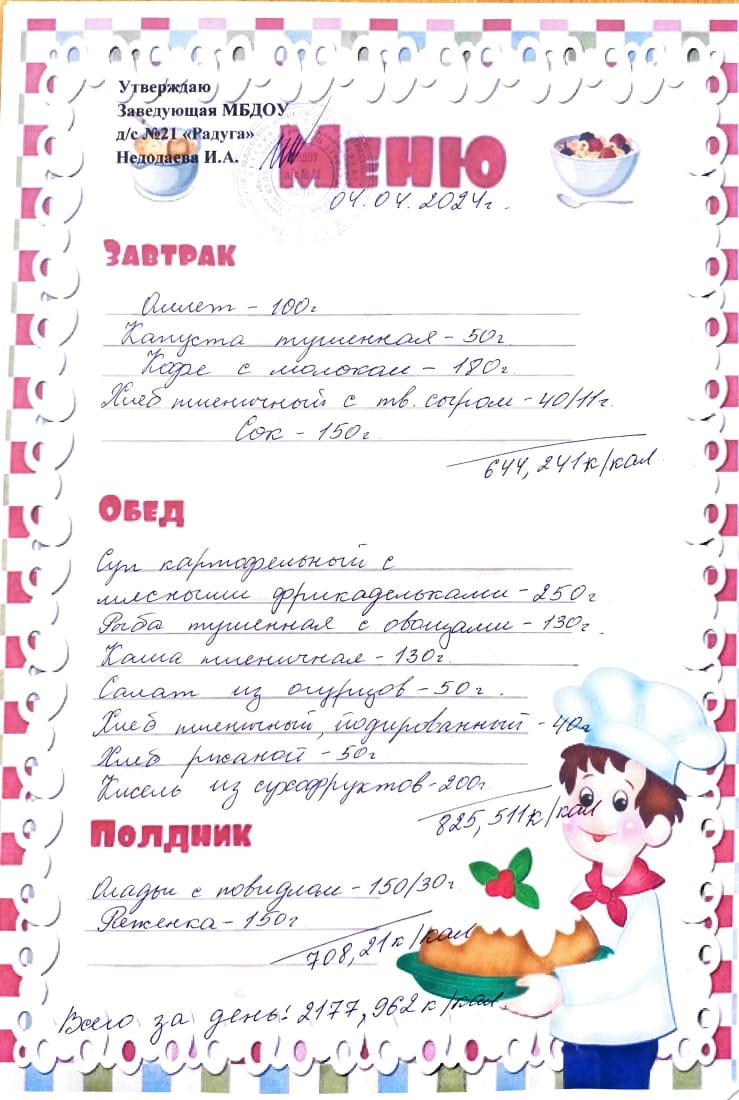 Утверждаю
Заведующая МБДОУ
д/с №21 «Радуга»
Недодаева И.А.
Меню
04.04.2024г.
Завтрак
Омлет - 100г
Капуста тушенная - 50г.
Кофе с молоком - 180г.
Хлеб пшеничный с тв. сыром - 40/11г.
Сок - 150г.
644,241к/кал
Обед
Суп картофельный с
мясными фрикадельками - 250г
Рыба тушенная с овощами - 130г.
Каша пшеничная - 130г.
Салат из огурцов - 50г.
Хлеб пшеничный, йодированный - 40г
Хлеб ржаной - 50г
Кисель из сухофруктов - 200г.
825,511к/кал
Полдник
Оладьи с повидлом - 150/30г.
Ряженка - 150г
708,21к/кал
Всего за день: 2177,962к/кал.